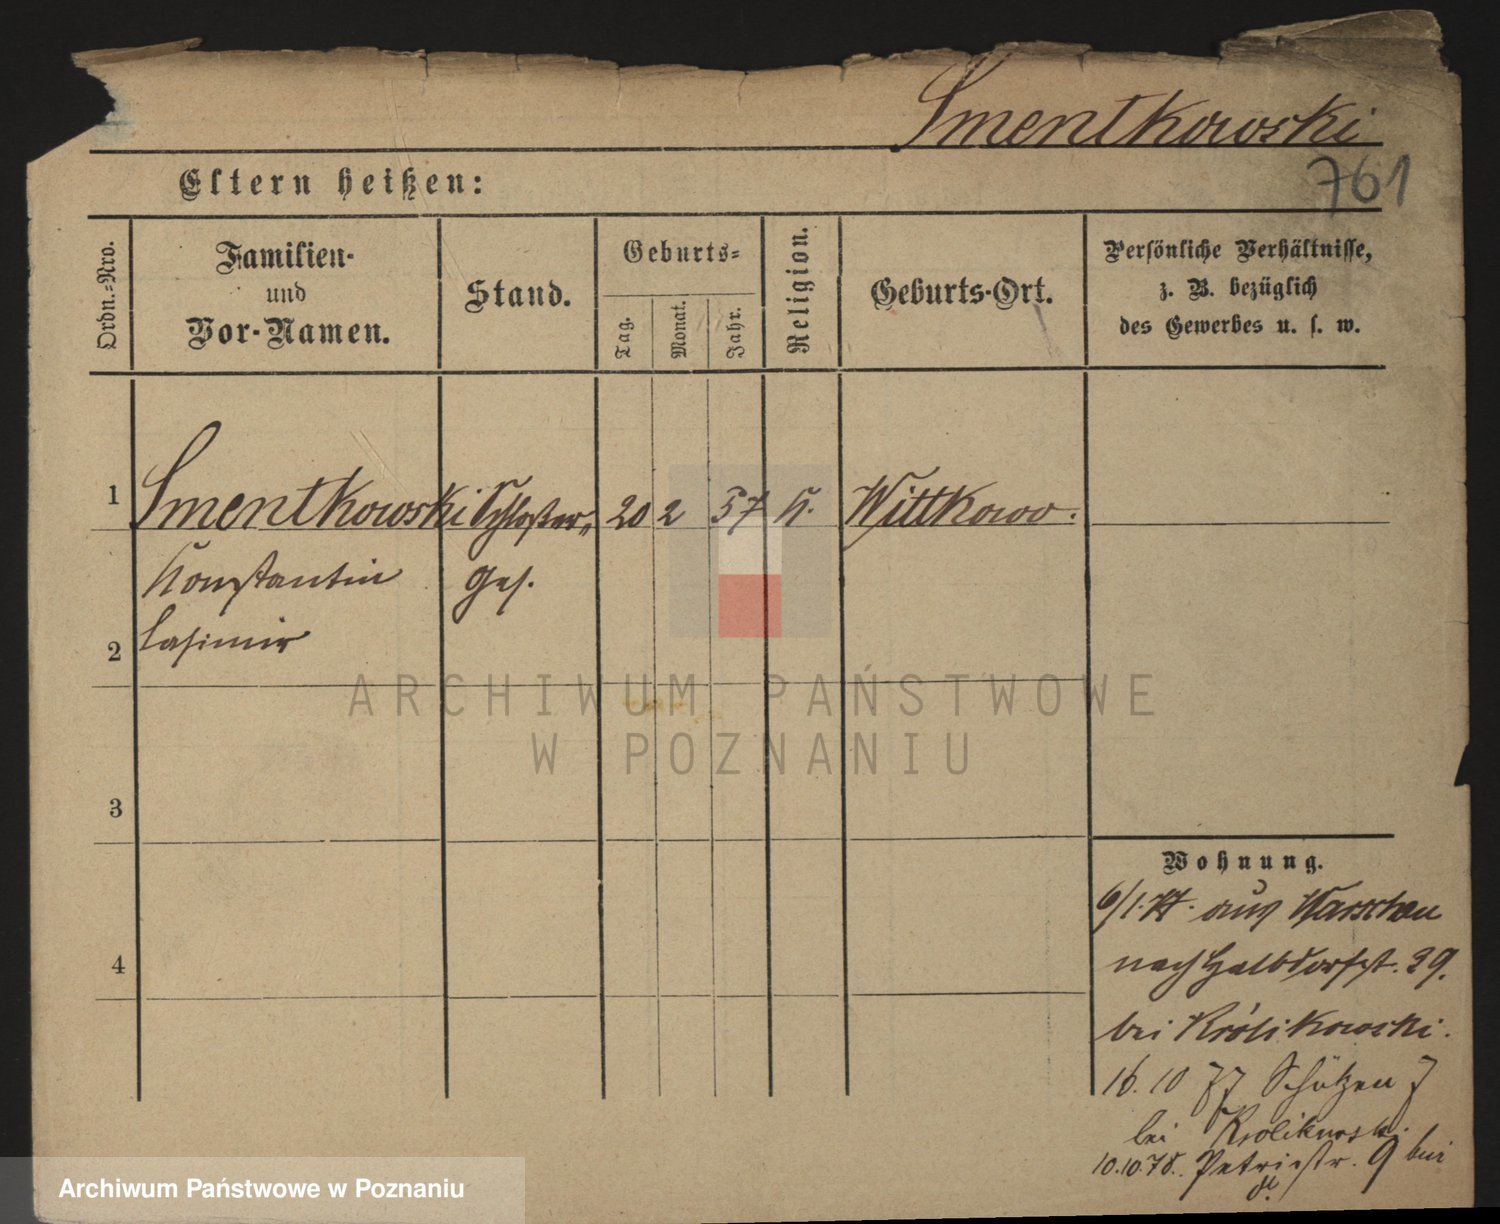 Smentkowski
761
Eltern heißen:
Ordn.-Nro.
Familien-
und
Vor-Namen.
Stand.
Geburts-
Tag.
Monat.
Jahr.
Religion.
Geburts-Ort.
Persönliche Verhältnisse,
z. B. bezüglich
des Gewerbes u. s. w.
1 Smentkowski Schlosser- 20 2 57 K. Wittkowo.
Konstantin Ges.
2 Casimir
3
4
Wohnung.
6/1. 77. aus Warschau
nach Halbdorfst. 39.
bei Królikowski.
16. 10 77 Schützen 7
bei Krolikowski.
10.10.78. Petristr. 9 bei
ARCHIWUM PAŃSTWOWE
W POZNANIU
Archiwum Państwowe w Poznaniu